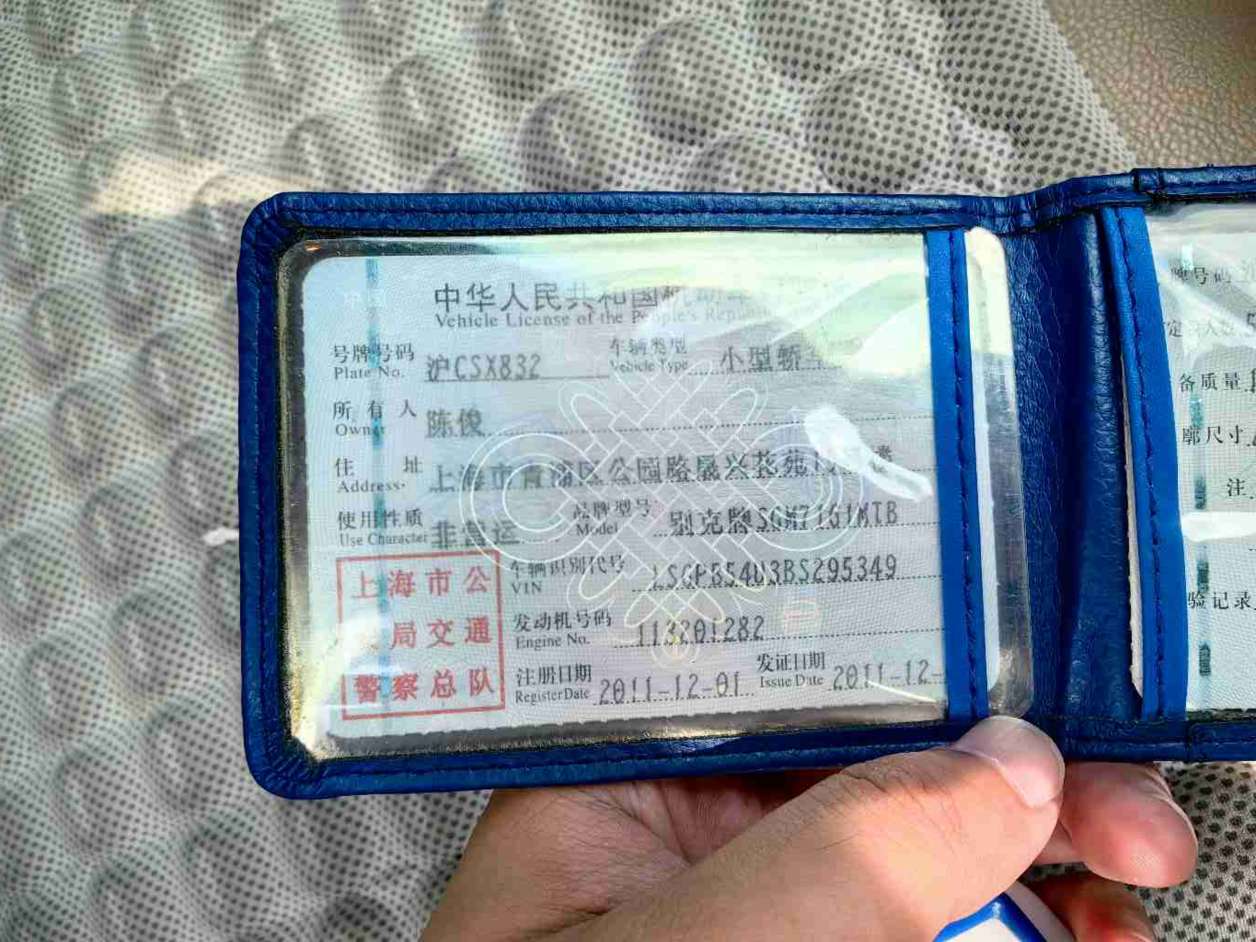 中华人民共和国机动车
Vehicle License of the People's Republic
号牌号码 沪CSX832 车辆类型 小型轿车
Plate No. Vehicle Type
所有人 陈俊
Owner
住址 上海市青浦区公园路晟兴苑
Address
使用性质 非营运 品牌型号 别克牌SGM7161MTB
Use Character Model
车辆识别代号 LSGPB54U3BS295349
VIN
发动机号码 113201282
Engine No.
注册日期 2011-12-01 发证日期 2011-12-
Register Date Issue Date
上海市公
局交通
警察总队
牌号码
人数
备质量
廓尺寸
注
验记录